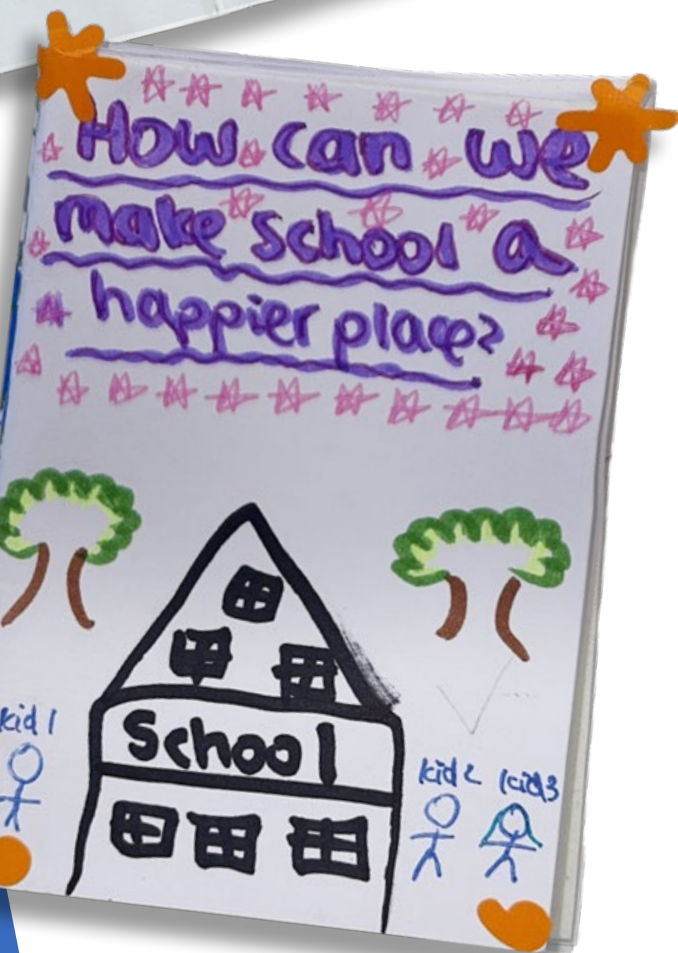 How can we
make school a
happier place?
School
kid 1
kid 2 kid3